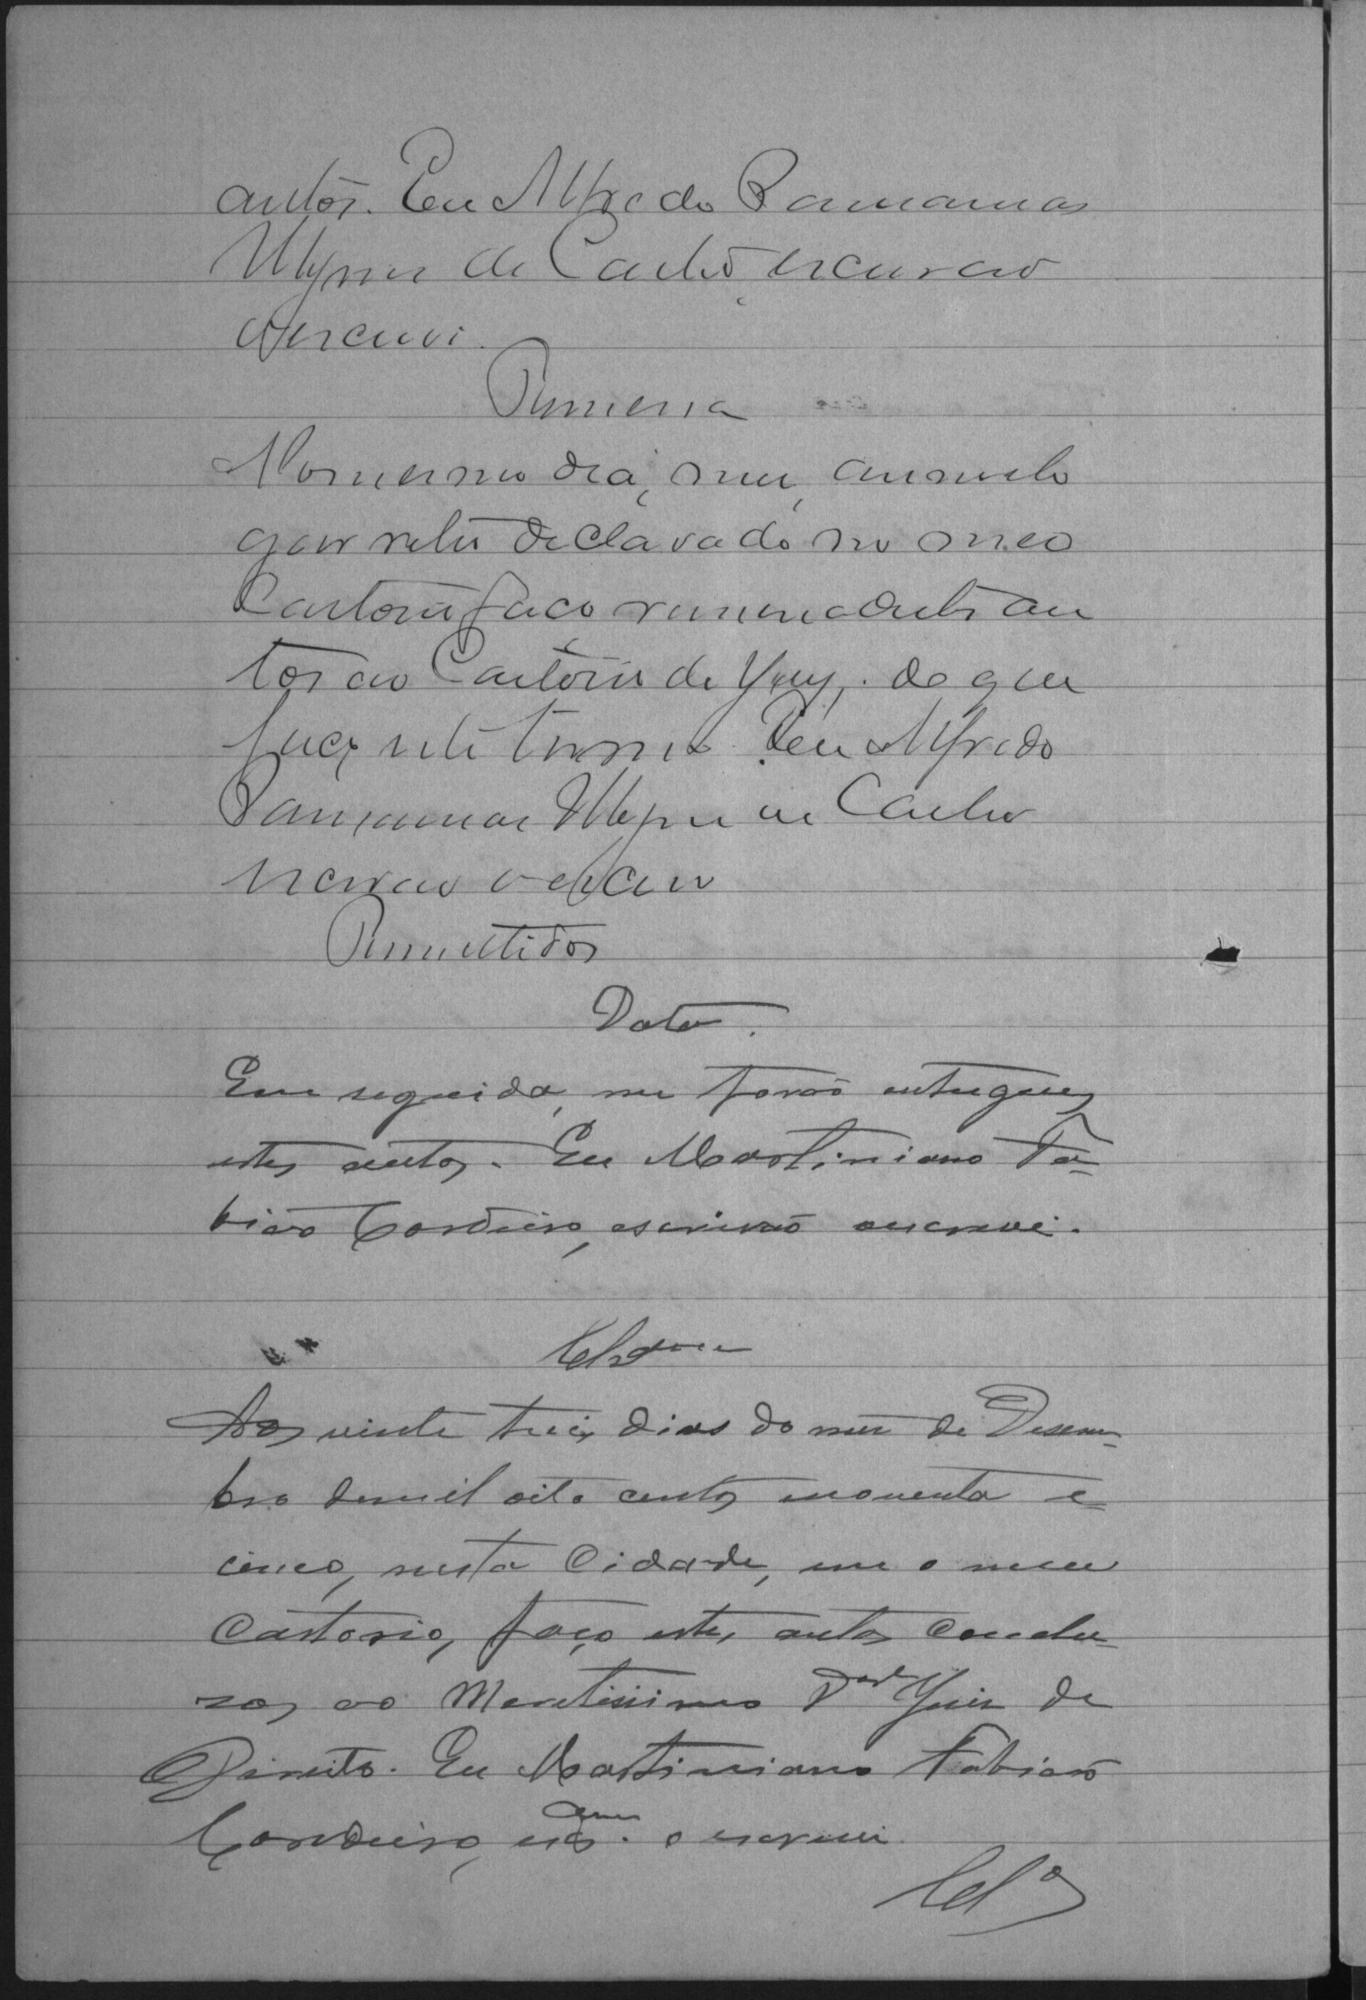 autos. Eu Alfredo Ramamos
Ulysses de Castro, escrivão
o escrevi.
Remessa
No mesmo dia, mez, anno e lo
gar retro declarado no meo
Cartorio faço remessa destes au
tos ao Cartorio do Jury, do que
faço este termo. Eu Alfredo
Ulysses de Castro
escrivão o escrevi
Remettidos
Data.
Em seguida, me forão entregues
estes autos. Eu Martiniano Fa-
bião Cordeiro, escrivão o escrevi.
Clsão
Aos vinte treis dias do mez de Desem-
bro de mil oito centos enoventa e
cinco, nesta Cidade, em o meu
Cartorio, faço estes autos Conclu-
zos ao Meretissimo Dor Juiz de
Direito. Eu Martiniano Fabião
Cordeiro, esam. o escrevi
Cls